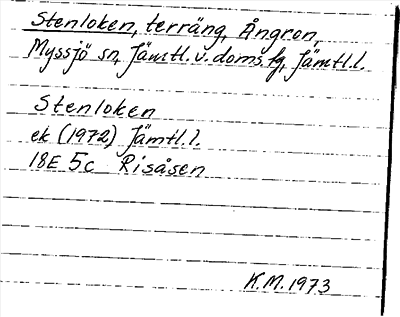 Stenloken, terräng, Ångron,
Myssjö sn, Jämtl. v. doms. fg, Jämtl. l.
Stenloken
ek (1972) Jämtl. l.
18E 5c Risåsen
K.M. 1973